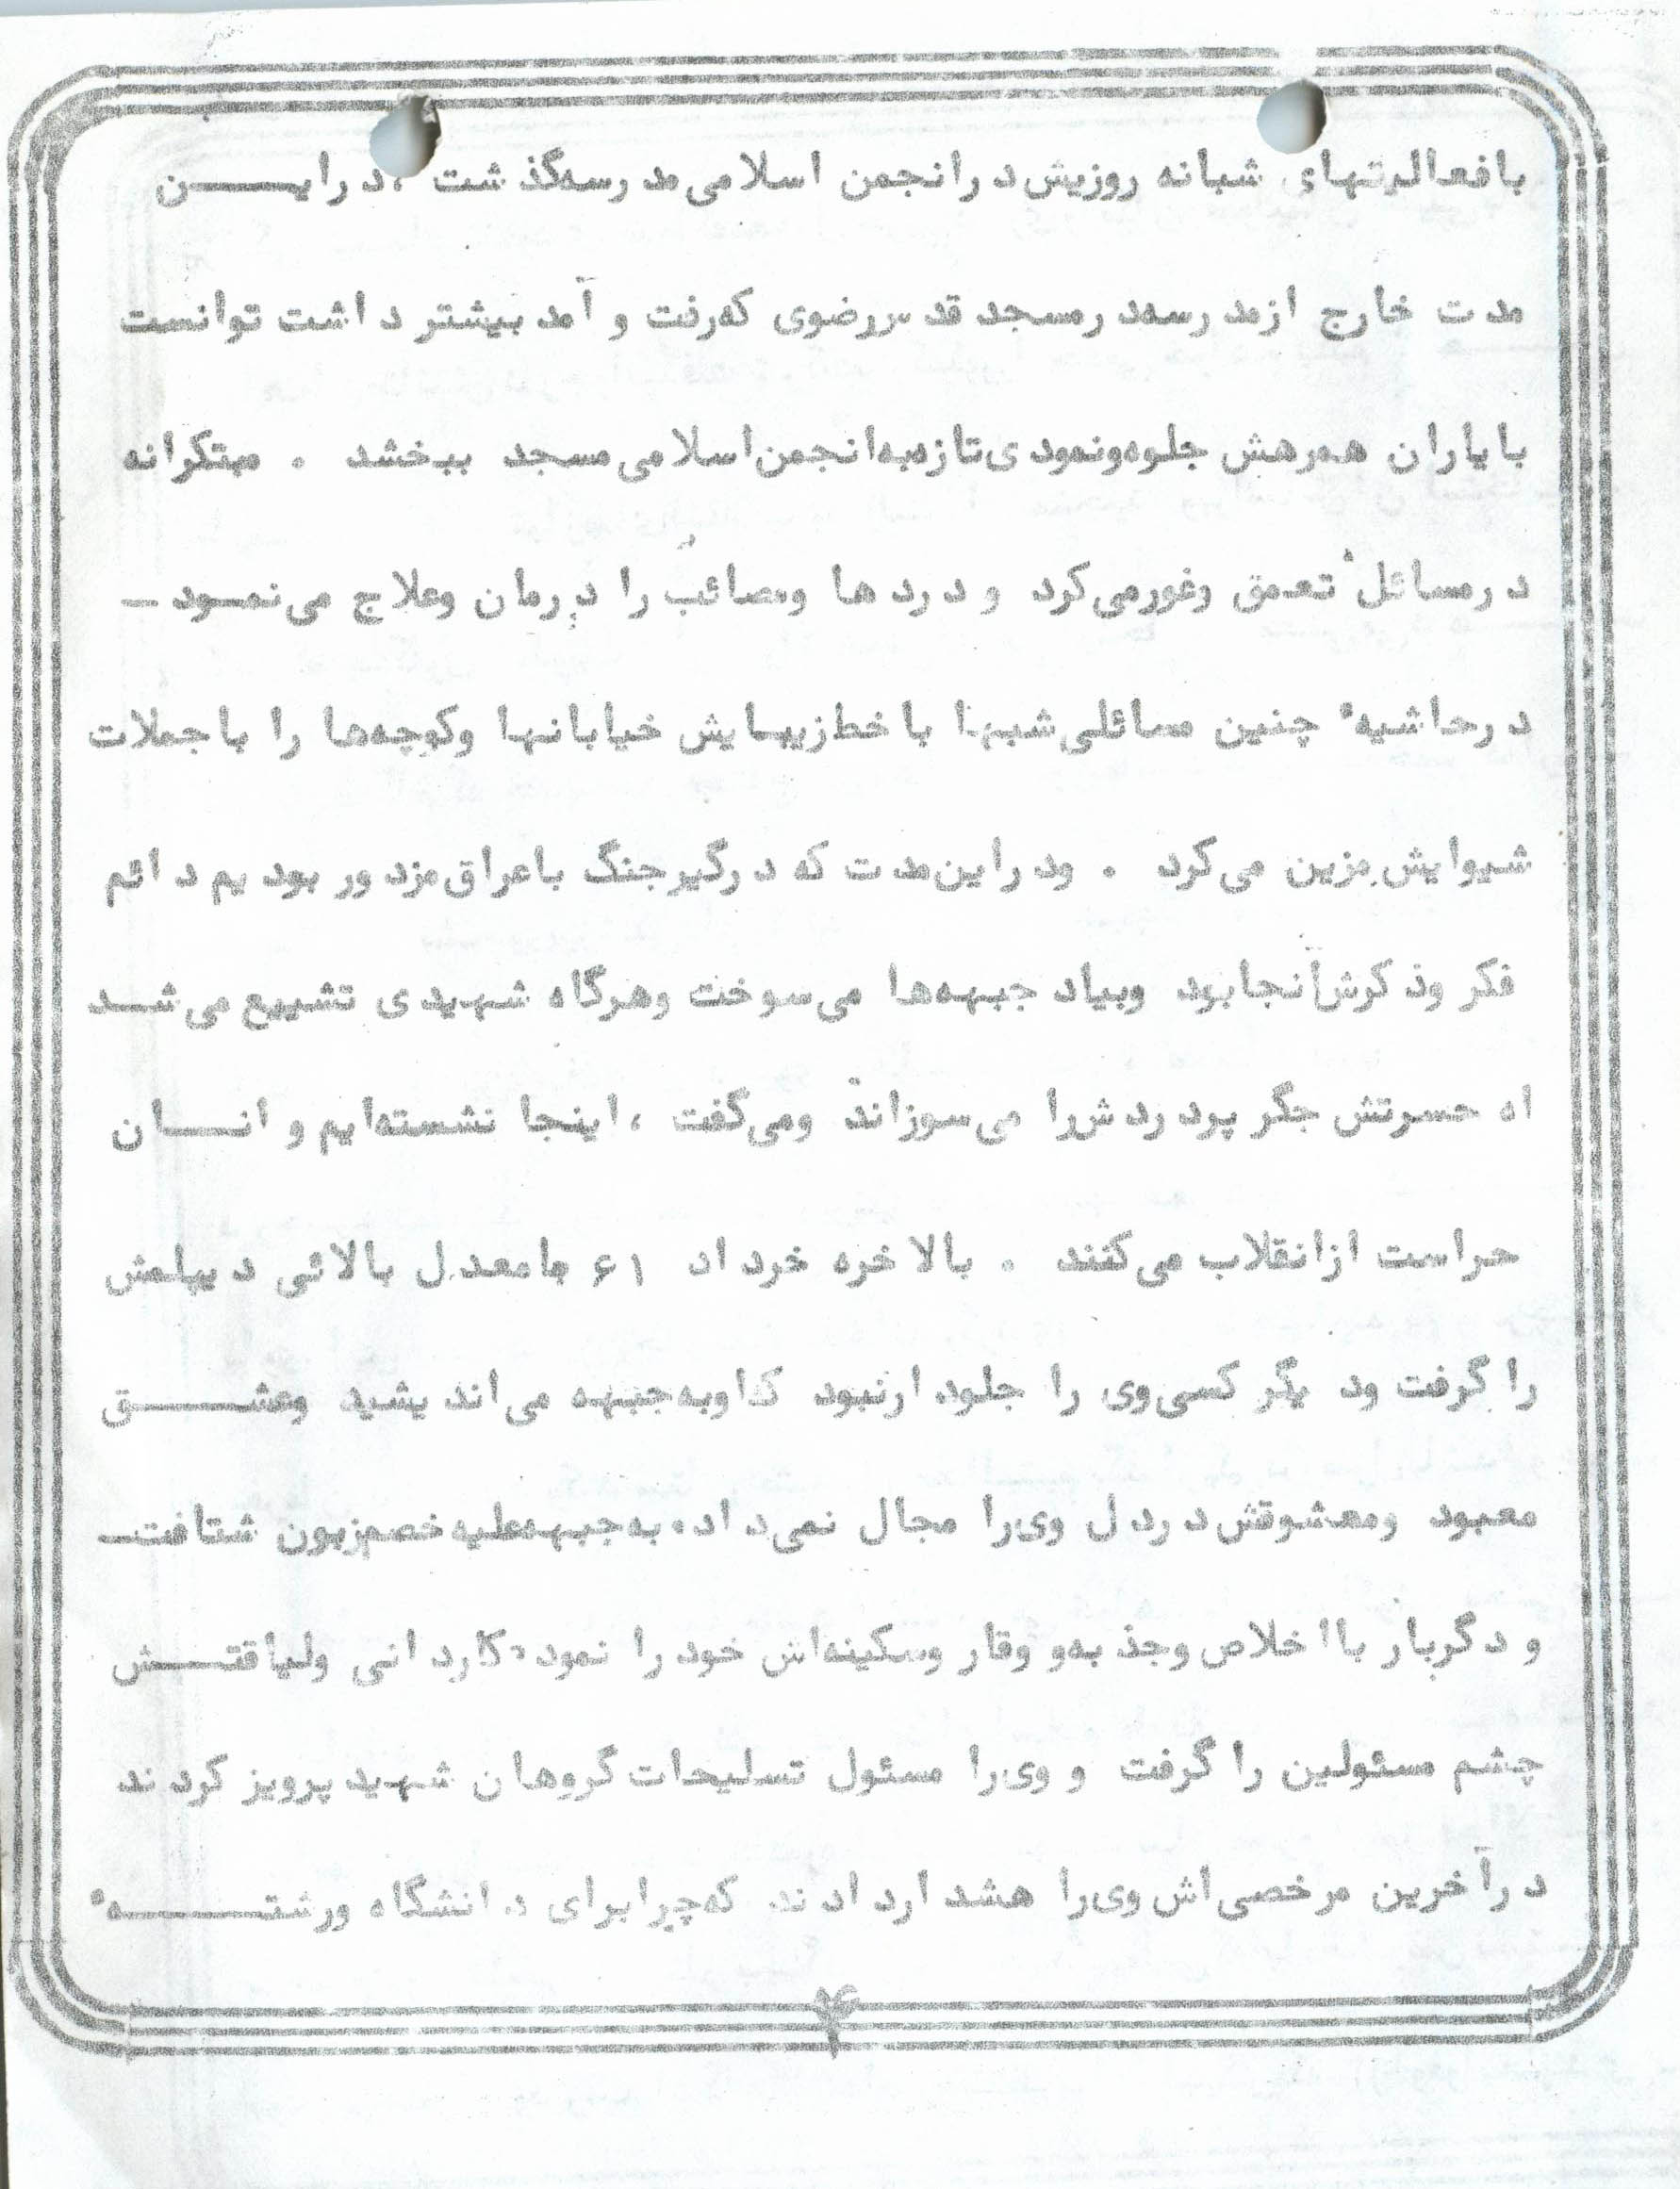 با فعالیتهای شبانه روزیش در انجمن اسلامی مدرسه گذشت ، در ایـــن
مدت خارج از مدرسه در مسجد قدس رضوی که رفت و آمد بیشتر داشت توانست
با یاران همرهش جلوه و نمودی تازه به انجمن اسلامی مسجد ببخشد . مبتکرانه
در مسائل تعمق و غور می کرد و دردها و مصائب را درمان و علاج می نمـود -
در حاشیهٔ چنین مسائلی شبها با خط زیبایش خیابانها و کوچه ها را با جملات
شیوایش مزین می کرد . و در این مدت که درگیر جنگ با عراق مزدور بودیم دائم
فکر و ذکرش آنجا بود و بیاد جبهه ها می سوخت و هرگاه شهیدی تشییع می شـد
اه حسرتش جگر پر دردش را می سوزاند و می گفت ، اینجا نشسته ایم و انـــان
حراست از انقلاب می کنند . بالاخره خرداد ۶۱ با معدل بالائی دیپلمش
را گرفت و دیگر کسی وی را جلودار نبود که او به جبهه می اندیشید و عشـــق
معبود و معشوقش در دل وی را مجال نمی داد ، به جبهه علیه خصم زبون شتافت
و دگربار با اخلاص و جذبه و وقار و سکینه اش خود را نمود ، کاردانی و لیاقتــش
چشم مسئولین را گرفت و وی را مسئول تسلیحات گروهان شهید پرویز کردند
در آخرین مرخصی اش وی را هشدار دادند که چرا برای دانشگاه و رشتـــهٔ